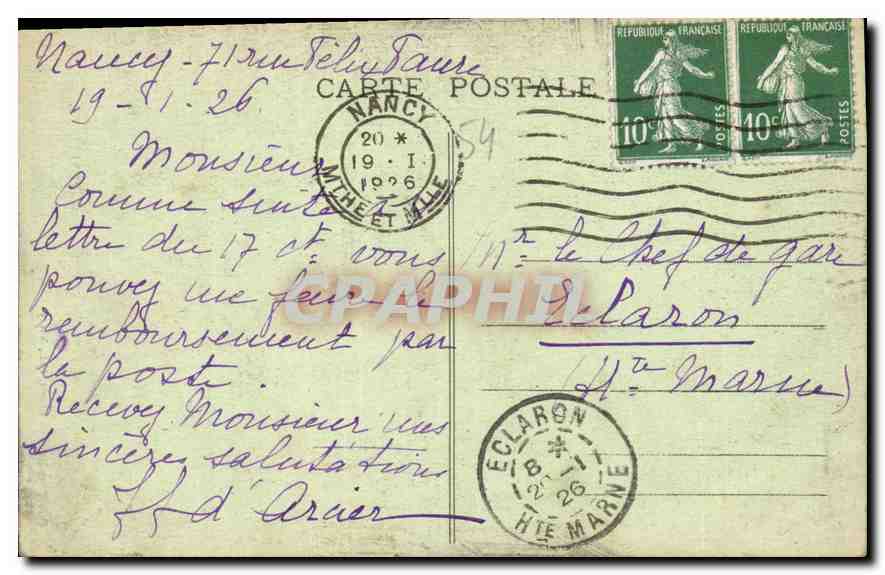 Nancy - 71 rue Félix Faure
19 - 1. 26.
CARTE POSTALE
Monsieur
Comme suite à
lettre du 17 ct. vous
pouvez me faire le
remboursement par
la poste.
Recevez Monsieur mes
sincères salutations
d'Arcier
NANCY
20 *
19 · I
1926
MTHE ET MLLE
54
REPUBLIQUE FRANÇAISE
10c
POSTES
REPUBLIQUE FRANÇAISE
10c
POSTES
Mr le Chef de gare
Eclaron
(Hte Marne)
ECLARON
*
8
20 -1
26
HTE MARNE
CPAPHIL